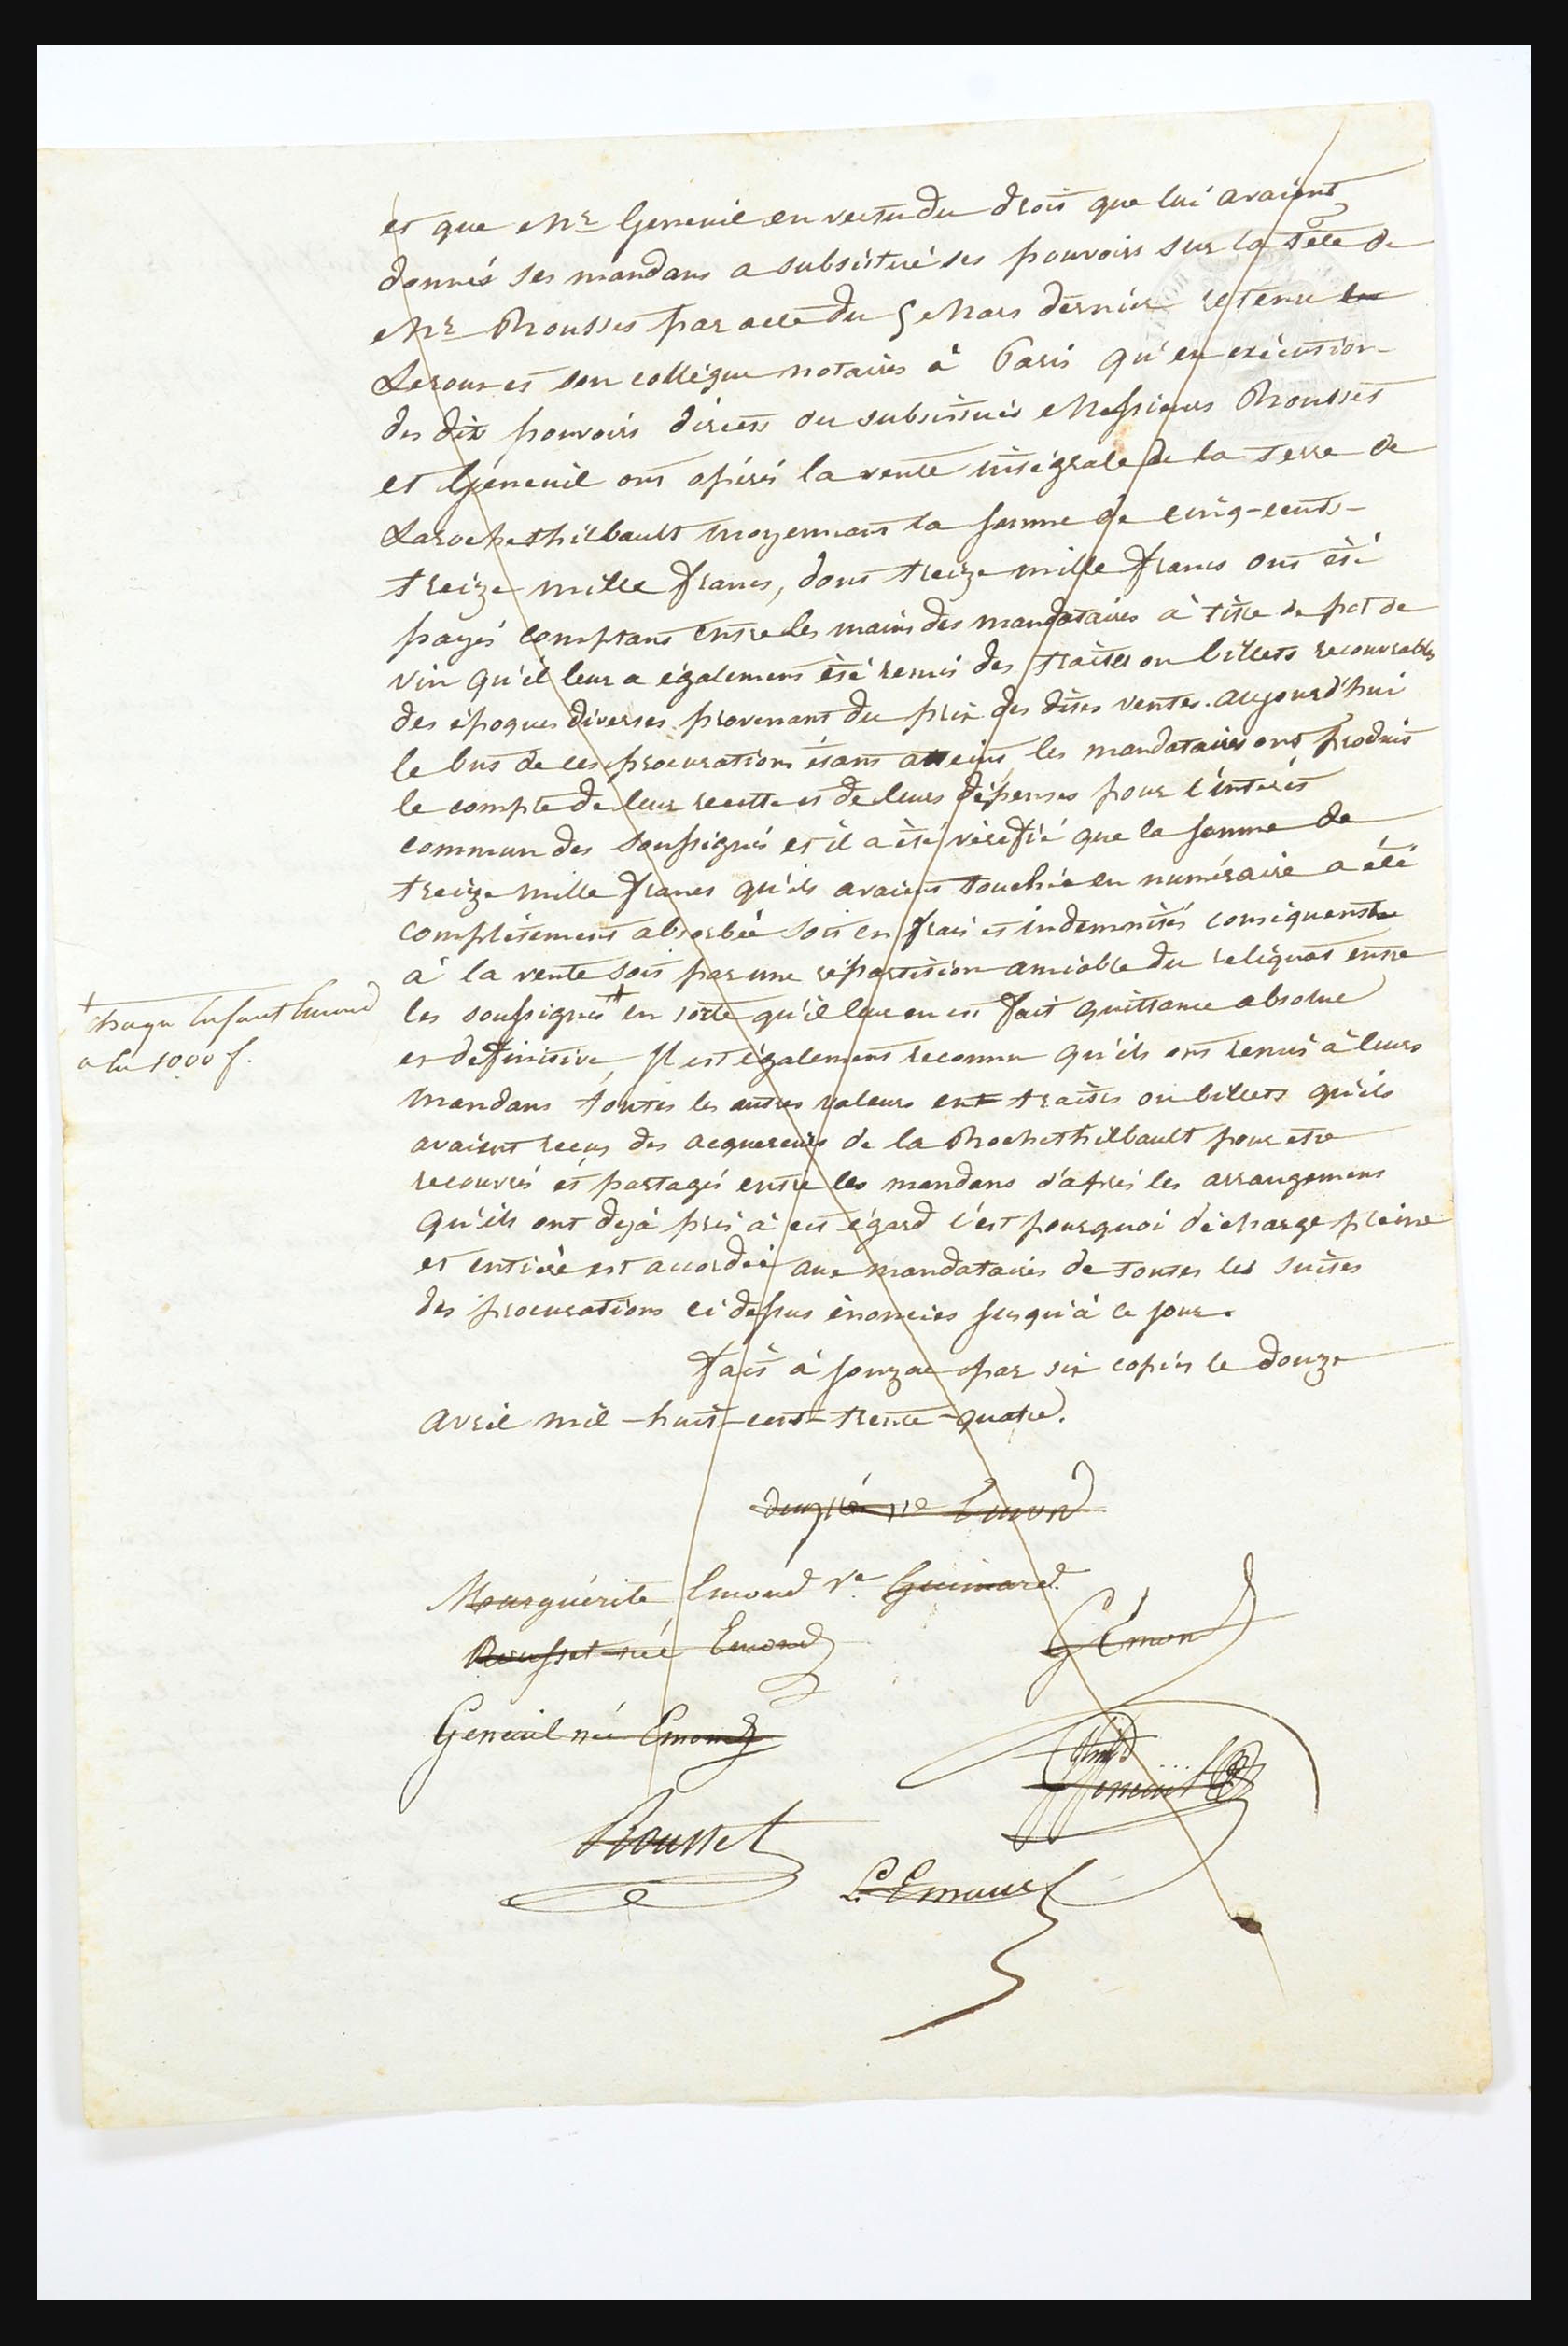 et que Mr Geneuil en vertu du droit que lui avaient
donnés ses mandans a substitué ses pouvoirs sur la tête de
Mr Rousset par acte du 5 Mars dernier retenu
Leroux et son collégue notaires à Paris qu'en exécution
des dits pouvoirs directs ou substitués Messieurs Rousset
et Geneuil ont opérés la vente intégrale de la terre de
Larochethilbault moyennant la somme de cinq-cents-
treize mille francs, dont treize mille francs ont été
payés comptans entre les mains des mandataires à titre de pot de
vin qu'il leur a également été remis des traites ou billets recouvrables
des époques diverses provenant du prix des dites ventes. aujourd'hui
le but de ces procurations étant atteint, les mandataires ont produit
le compte de leur recette et de leurs dépenses pour l'intérêt
commun des soussignés et il a été vérifié que la somme de
treize mille francs qu'ils avaient touchée en numéraire a été
complétement absorbée soit en frais et indemnités conséquents
à la vente soit par une répartition amiable du reliquat entre
les soussignés + en sorte qu'il leur en est fait quittance absolue
+ chaque Enfant Emond
a eu 1000 f.
et définitive, Il est également reconnu qu'ils ont remis à leurs
mandans toutes les autres valeurs en traites ou billets qu'ils
avaient reçus des acquereurs de la Rochethilbault pour etre
recouvrés et partagés entre les mandans d'après les arrangemens
qu'ils ont dejà pris à cet égard c'est pourquoi décharge pleine
et entière est accordée aux mandataires de toutes les suites
des procurations ci dessus énoncées jusqu'à ce jour.
Fait à Jonzac par six copies le douze
avril mil-huit-cent-trente-quatre.
ve Emond
Marguérite Emond ve Guimard
Rousset née Emond
G Emond
Geneuil née Emond
Geneuil
Rousset
L. Emond